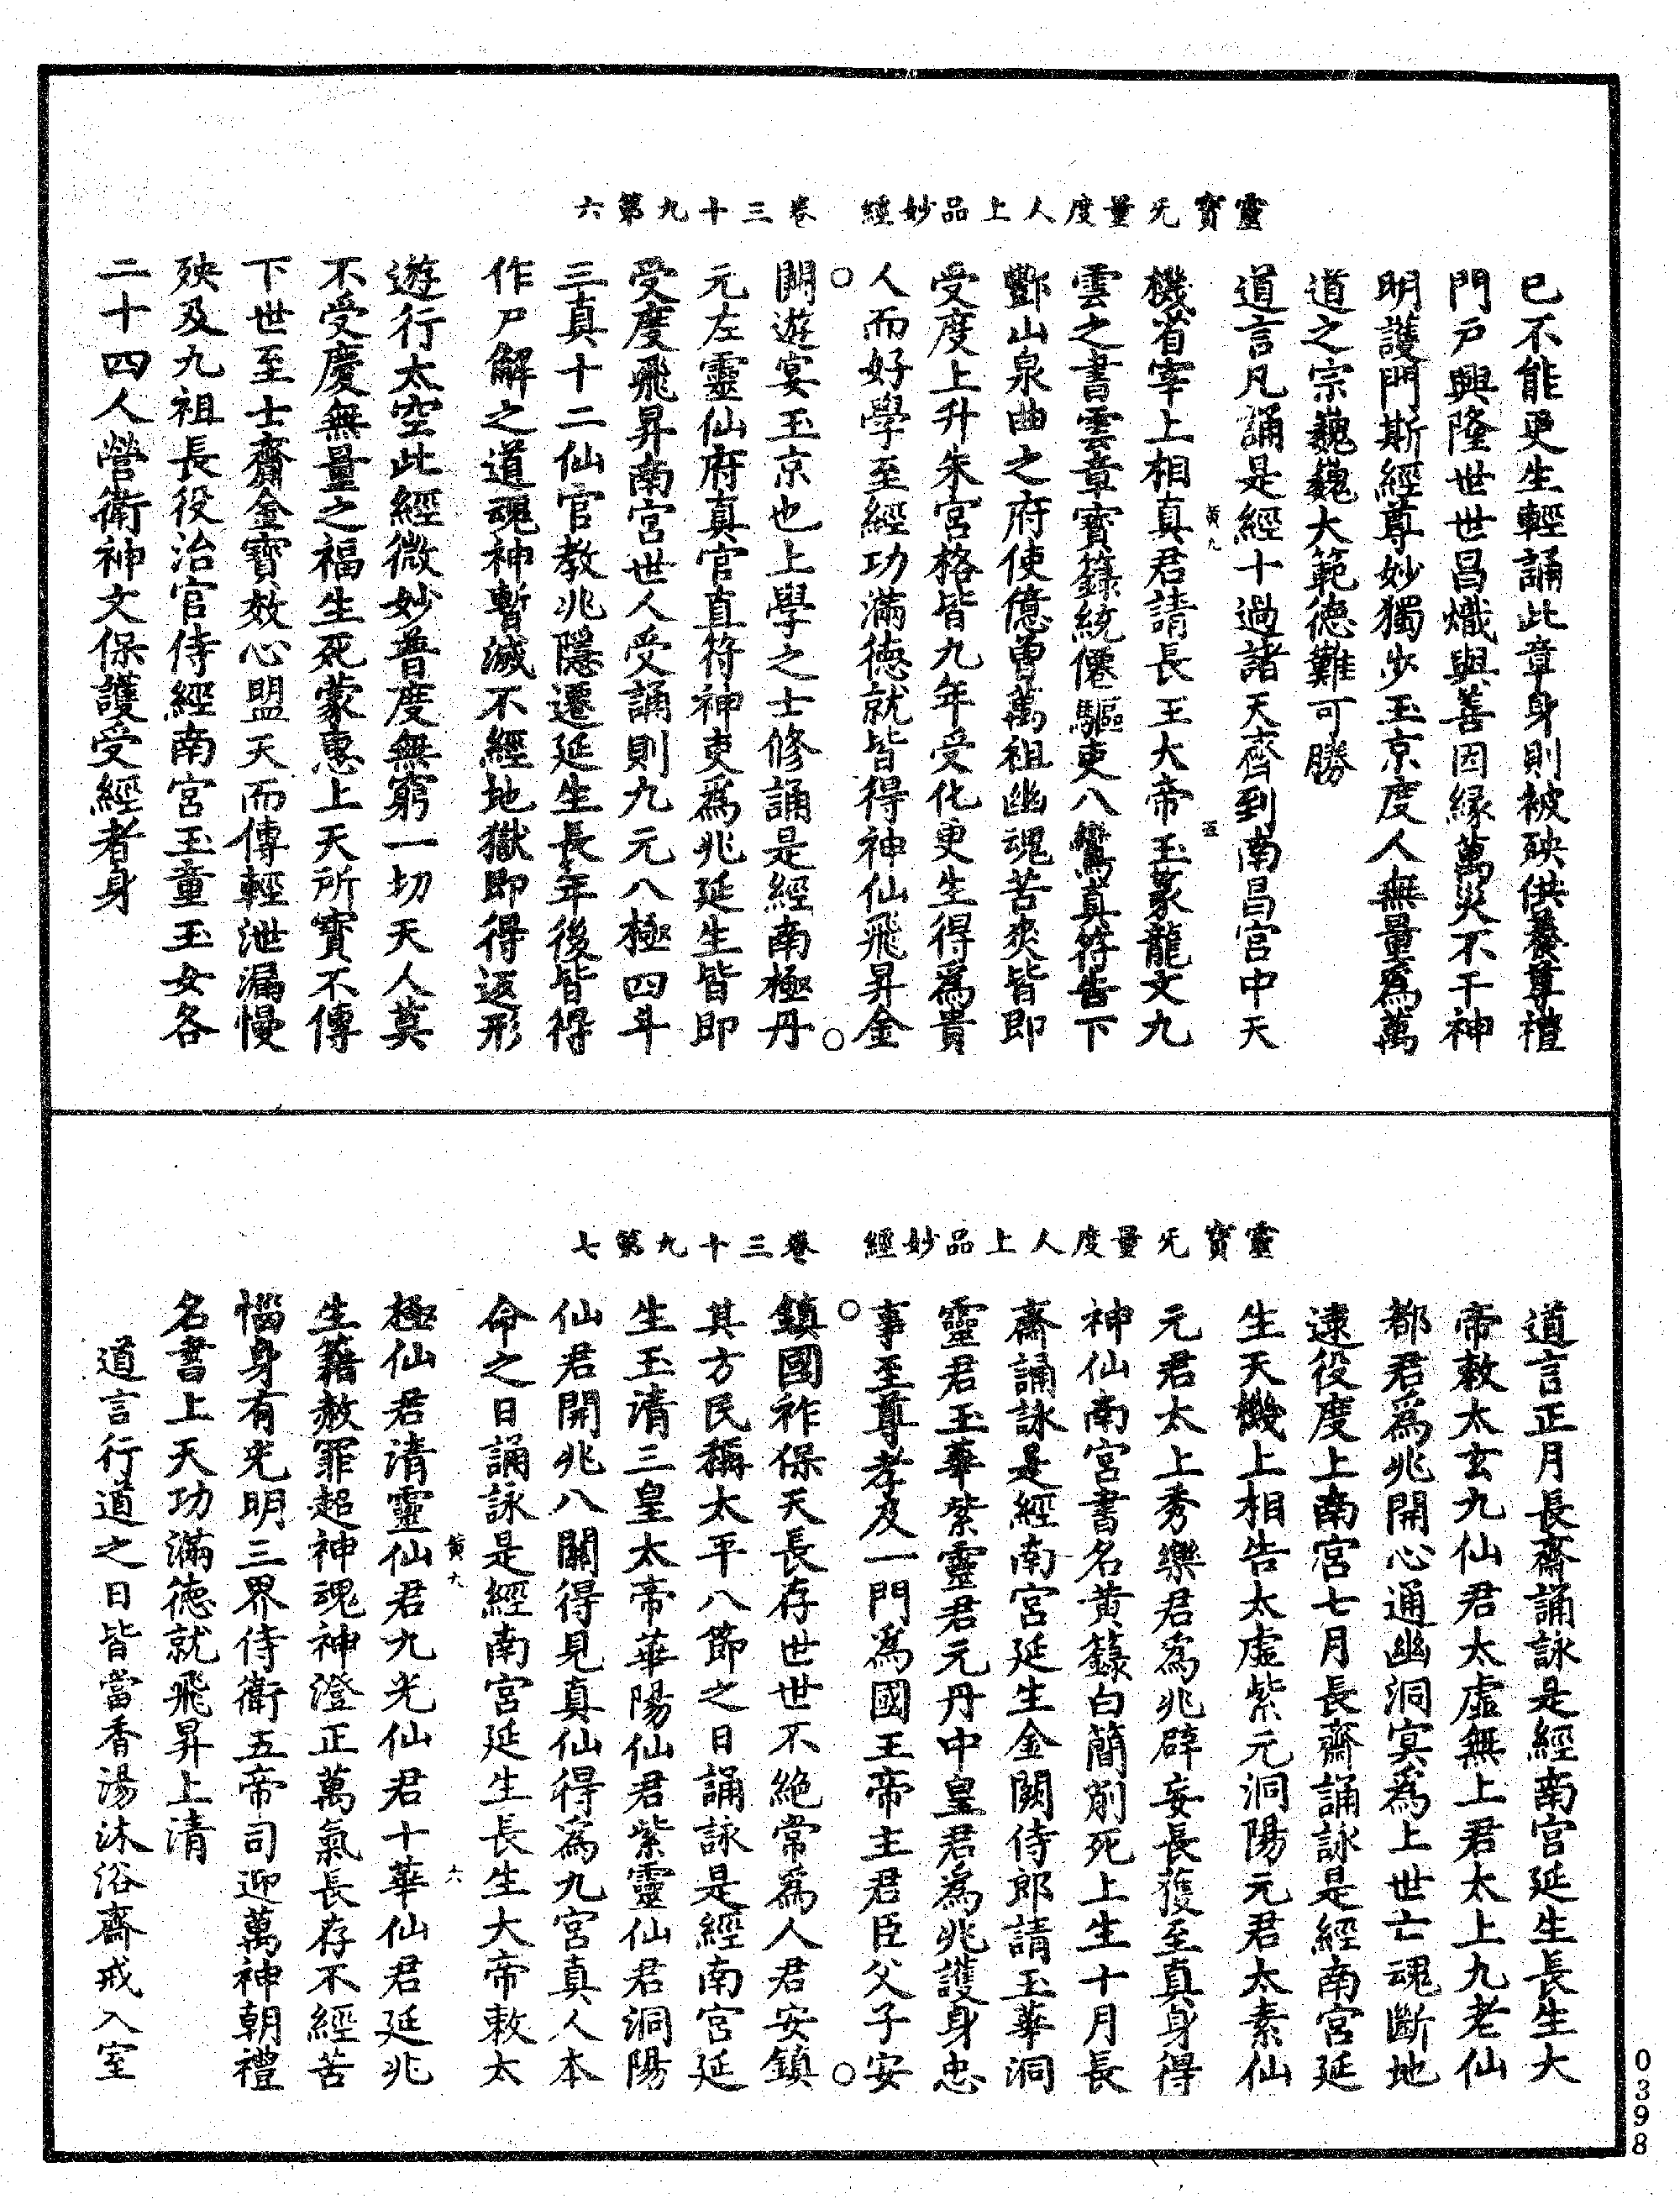 靈寳旡量度人上品妙經　卷三十九第六
已不能更生輕誦此章身則被殃供養尊禮
門戸興隆世世昌熾與善因緣萬災不干神
明護門斯經尊妙獨步玉京度人無量爲萬
道之宗巍巍大範德難可勝
道言凡誦是經十過諸天齊到南昌宫中天
黃九　五
機省宰上相真君請長王大帝玉篆龍文九
雲之書雲章寳籙統僊驅吏八鸞真符告下
酆山泉曲之府使億曽萬祖幽魂苦爽皆即
受度上升朱宫格皆九年受化更生得爲貴
人而好學至經功滿德就皆得神仙飛昇金
闕遊宴玉京也上學之士修誦是經南極丹
元左靈仙府真官直符神吏爲兆延生皆即
受度飛昇南宫世人受誦則九元八極四斗
三真十二仙官教兆隱遷延生長年後皆得
作尸解之道魂神暫滅不經地獄即得返形
遊行太空此經微妙普度無窮一切天人莫
不受慶無量之福生死蒙惠上天所寳不傳
下世至士齎金寳效心盟天而傳輕泄漏慢
殃及九祖長役治官侍經南宫玉童玉女各
二十四人營衛神文保護受經者身
靈寳旡量度人上品妙經　卷三十九第七
道言正月長齋誦詠是經南宫延生長生大
帝敕太玄九仙君太虛無上君太上九老仙
都君爲兆開心通幽洞冥爲上世亡魂斷地
逮役度上南宫七月長齋誦詠是經南宫延
生天機上相告太虛紫元洞陽元君太素仙
元君太上秀樂君爲兆辟妄長獲至真身得
神仙南宫書名黃籙白簡削死上生十月長
齋誦詠是經南宫延生金闕侍郎請玉華洞
靈君玉華紫靈君元丹中皇君爲兆護身忠
事至尊孝及一門爲國王帝主君臣父子安
鎮國祚保天長存世世不絶常爲人君安鎮
其方民稱太平八節之日誦詠是經南宫延
生玉清三皇太帝華陽仙君紫靈仙君洞陽
仙君開兆八關得見真仙得爲九宫真人本
命之日誦詠是經南宫延生長生大帝敕太
黃九　六
極仙君清靈仙君九光仙君十華仙君延兆
生籍赦罪超神魂神澄正萬氣長存不經苦
惱身有光明三界侍衛五帝司迎萬神朝禮
名書上天功滿德就飛昇上清
道言行道之日皆當香湯沐浴齋戒入室
0398